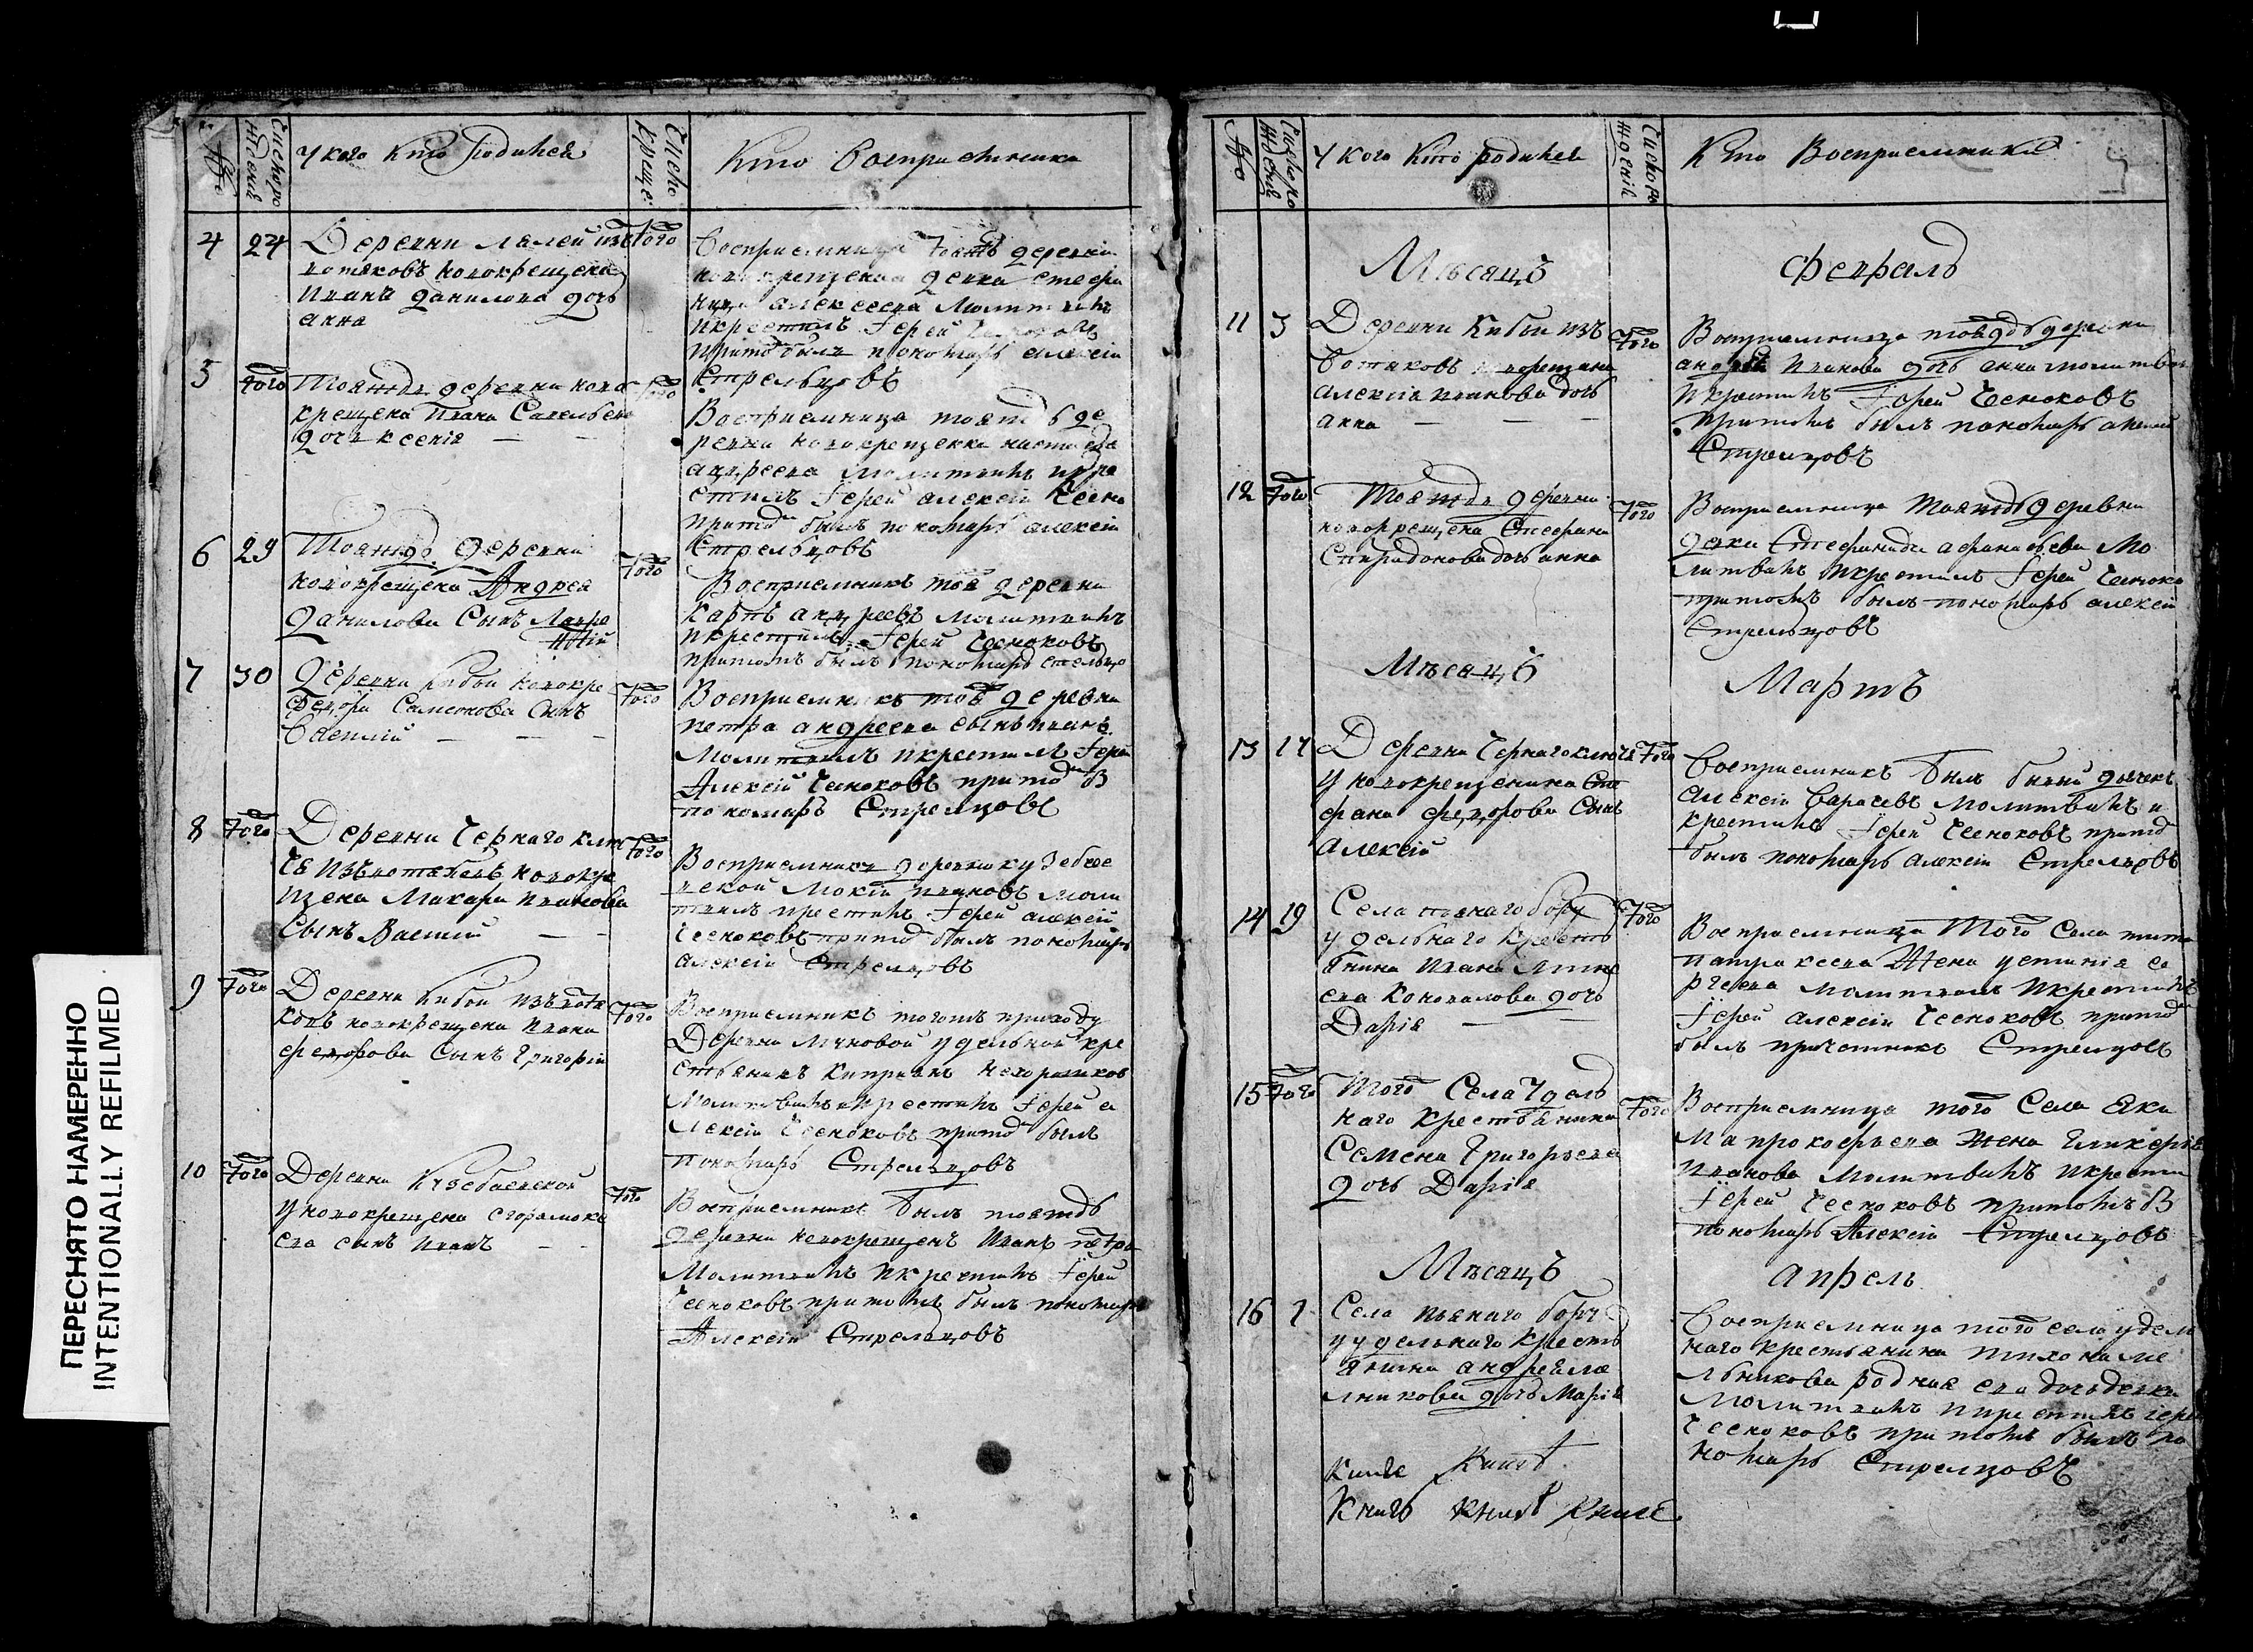 Число рожденій
У кого кто родился
Число креще
Кто восприемники
4 24 Деревни Лялей изъ
вотяковъ новокрещена
Ивана Данилова дочь
анна
того
Восприемница тояжъ деревни
новокрещенаа девка стефа
нида алексеева Молитвилъ
икрестилъ Іерей Чесноковъ
притомъ былъ пономарь алексіи
Стрельцовъ
5 того Тояждъ деревни ново
крещена Ивана Савельева
дочь ксенія
того
Восприемница тояждъ де
ревни новокрещенка настасея
андреева молитвилъ икре
стилъ Іерей алексіи Чесно
притом былъ пономарь алексіи
Стрельцовъ
6 29 Тояждъ деревни
новокрещена Андрея
Данилова Сынъ Лавре
нтій
того
Восприемникъ тоя деревни
Карпъ андреевъ молитвилъ
икрестилъ Іерей Чесноковъ
притомъ былъ пономарь
7 30 Деревни Кибьи новокре
Федора Самсонова Сынъ
Василій
того
Восприемникъ тоя деревни
петра андреева сынъ иванъ
Молитвилъ икрестилъ Іерей
Алексій Чесноковъ притом б
пономарь Стрелцовъ
8 того Деревни Чернаго клю
ча изъ вотяковъ новокре
щена Макара Иванова
Сынъ Василій
того
Восприемникъ деревни кузебае
вской Мокій ивановъ моли
твилъ крестилъ Іерей алексій
Чесноковъ притом былъ пономарь
алексіи Стрелцовъ
9 того Деревни Кибьи изъ вотя
ковъ новокрещена Ивана
федорова Сынъ Григорій
того
Восприемникъ тогожъ приходу
Деревни удельной кре
стьянинъ Киприанъ
Молитвилъ икрестилъ Іерей а
лексіи Чесноковъ притом былъ
пономарь Стрельцовъ
10 того Деревни Кузебаевской
у новокрещена
сынъ иванъ
того
Восприемникъ былъ тояждъ
деревни новокрещенъ Иванъ петро
Молитвилъ икрестилъ Іерей
Чесноковъ притомъ былъ пономарь
Алексіи Стрелцовъ
У кого кто родился
Кто Восприемники
Мѣсяцъ Февраль
11 3 Деревни Кибьи изъ
вотяковъ новокрещена
алексіа иванова дочь
анна
того
Восприемница тояждъ деревни
андрея иванова дочь анна молитви
икрестилъ Іерей Чесноковъ
притомъ былъ пономарь
Стрелцовъ
12 того Тояждъ деревни
новокрещена Стефана
Спиридонова дочь анна
того
Восприемница Тояждъ деревни
девка Стефанида афанасьева Мо
литвилъ икрестилъ Іерей Чесноко
притомъ былъ пономарь алексіи
Стрельцовъ
Мѣсяцъ Мартъ
13 17 Деревни Чернаго ключа
у новокрещенина Сте
фана федорова Сынъ
Алексій
того
Восприемникъ былъ дьячекъ
Алексіи молитвилъ и
крестилъ Іерей Чесноковъ притом
былъ пономарь Алексіи Стрелцовъ
14 19 Села пьянаго бору
удельнаго кресть
янина Ивана
Коновалова дочь
Дарія
того
Восприемница Того Села тита
патракеева Жена устинія се
ргеева Молитвилъ икрестилъ
Іерей алексіи Чесноковъ притом
былъ причетникъ Стрелцовъ
15 того Того Села Удель
наго крестьянина
Семена Григорьева
дочь Дарія
того
Восприемница того Села Яки
ма прокофьева жена гликерья
Иванова Молитвилъ икрести
Іерей Чесноковъ притомъ б
пономарь Алексіи Стрелцовъ
Мѣсяцъ апрель
16 1 Села пьянаго бору
у удельнаго кресть
янина андрея
дочь Марія
Восприемница того села удел
наго крестьянина тихона ме
льникова родная ева дочь девка
Молитвилъ икрестилъ іерей
Чесноковъ притомъ былъ по
номарь Стрелцовъ
ПЕРЕСНЯТО НАМЕРЕННО
INTENTIONALLY REFILMED